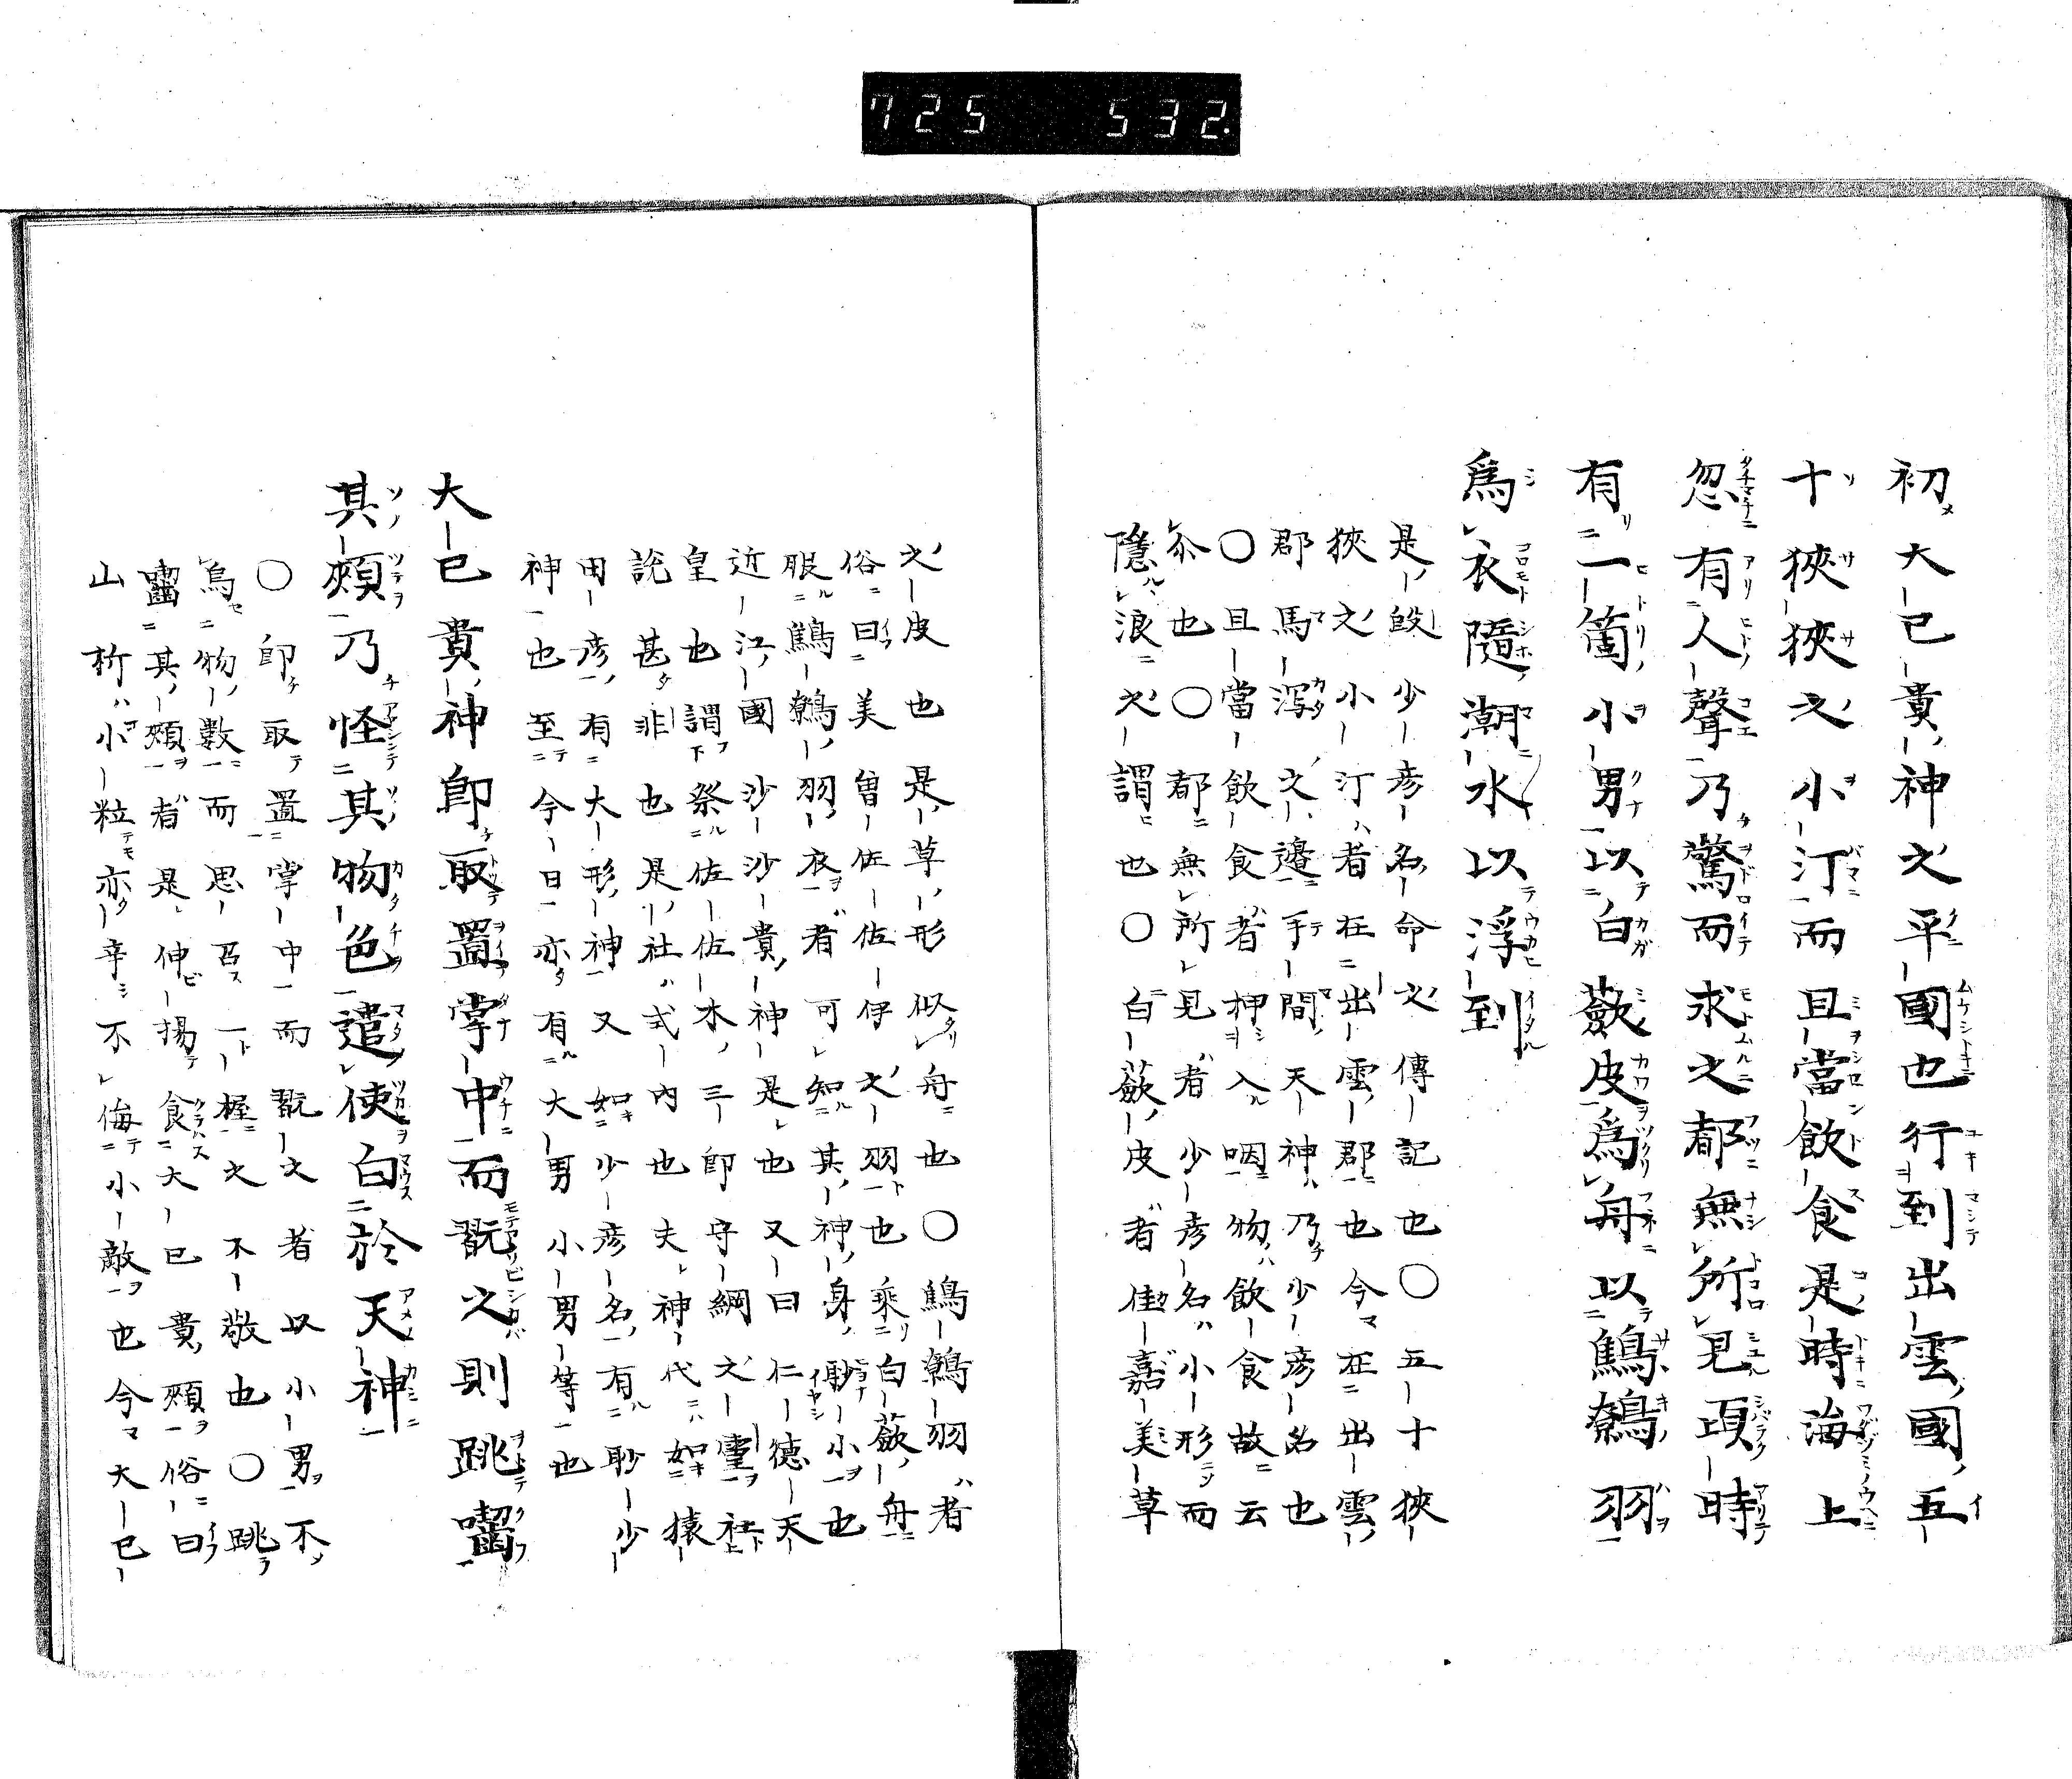 725 532.
初大己貴神之平國也行到出雲國五
十狹狹之小汀而且當飲食是時海上
忽有人聲乃驚而求之都無所見頃時
有一箇小男以白蘞皮爲舟以鷦鷯羽
爲衣隨潮水以浮到
是段少彦名命之傳記也〇五十狹
狹之小汀者在出雲郡也今在出雲
郡馬瀉之邊手間天神乃少彦名也
〇且當飲食者押入咽物飲食故云
尒也〇都無所見者少彦名小形而
隱浪之謂也〇白蘞皮者佳嘉美草
之皮也是草形似舟也〇鷦鷯羽者
俗曰美曽佐佐伊之羽也乘白蘞舟
服鷦鷯羽衣者可知其神身眇小也
近江國沙沙貴神是也又曰仁德天
皇也謂祭佐佐木三卽守綱之靈社
說甚非也是社式內也夫神代如猿
田彦有大形神又如少彦名有眇少
神也至今日亦有大男小男等也
大己貴神卽取置掌中而翫之則跳囓
其頰乃怪其物色遣使白於天神
〇卽取置掌中而翫之者以小男不
爲物數而思召一握之不敬也〇跳
囓其頰者是伸揚食大己貴頰俗曰
山析小粒亦辛不侮小敵也今大己